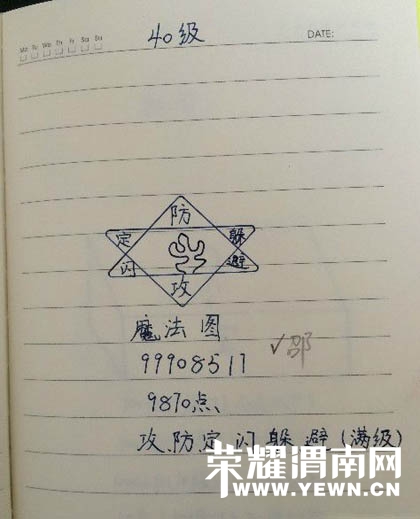 40级
Mo Tu We Th Fr Sa Su
DATE:
防
定 躲
闪 避
攻
魔法图
99908511
✓邵
9870点
攻防定闪躲避(满级)
荣耀渭南网
WWW.YEWN.CN